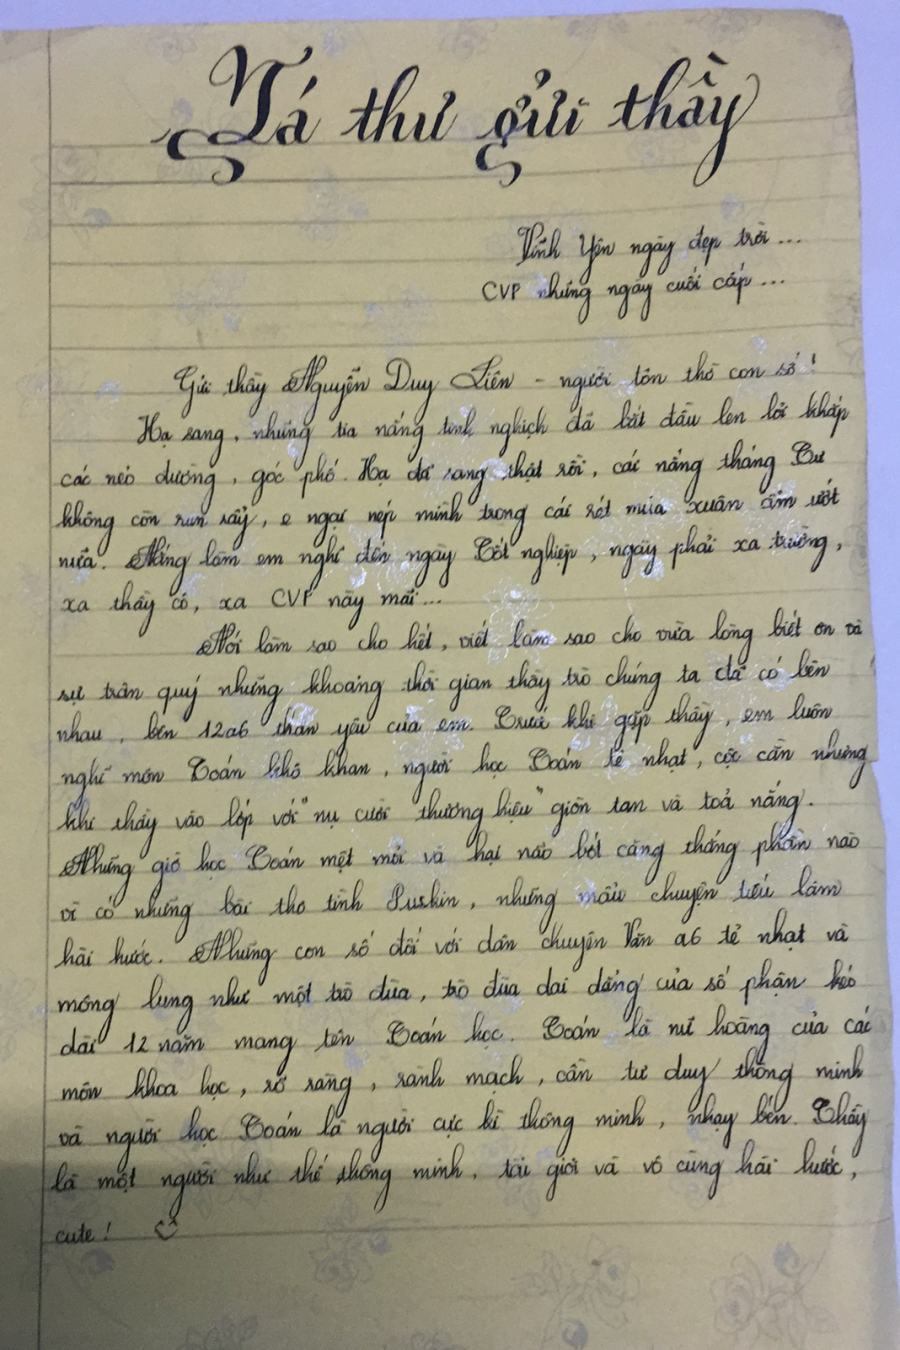 Lá thư gửi thầy
Vĩnh Yên ngày đẹp trời...
CVP những ngày cuối cấp...
Gửi thầy Nguyễn Duy Liên - người tôn thờ con số!
Hạ sang, những tia nắng tinh nghịch đã bắt đầu len lỏi khắp
các nẻo đường, góc phố. Hạ đã sang thật rồi, cái nắng tháng Tư
không còn run rẩy, e ngại nép mình trong cái rét mùa xuân ẩm ướt
nữa. Nắng làm em nghĩ đến ngày Tốt nghiệp, ngày phải xa trường,
xa thầy cô, xa CVP này mãi...
Nói làm sao cho hết, viết làm sao cho vừa lòng biết ơn và
sự trân quý những khoảng thời gian thầy trò chúng ta đã có bên
nhau, bên 12a6 thân yêu của em. Trước khi gặp thầy, em luôn
nghĩ môn Toán khô khan, người học Toán tẻ nhạt, cộc cằn nhưng
khi thầy vào lớp với "nụ cười thương hiệu" giòn tan và toả nắng.
Những giờ học Toán mệt mỏi và hại não bớt căng thẳng phần nào
vì có những bài thơ tình Puskin, những mẩu chuyện tiếu lâm
hài hước. Những con số đối với dân chuyên Văn a6 tẻ nhạt và
mông lung như một trò đùa, trò đùa dai dẳng của số phận kéo
dài 12 năm mang tên Toán học. Toán là nữ hoàng của các
môn khoa học, rõ ràng, rành mạch, cần tư duy thông minh
và người học Toán là người cực kì thông minh, nhạy bén. Thầy
là một người như thế, thông minh, tài giỏi và vô cùng hài hước,
cute!